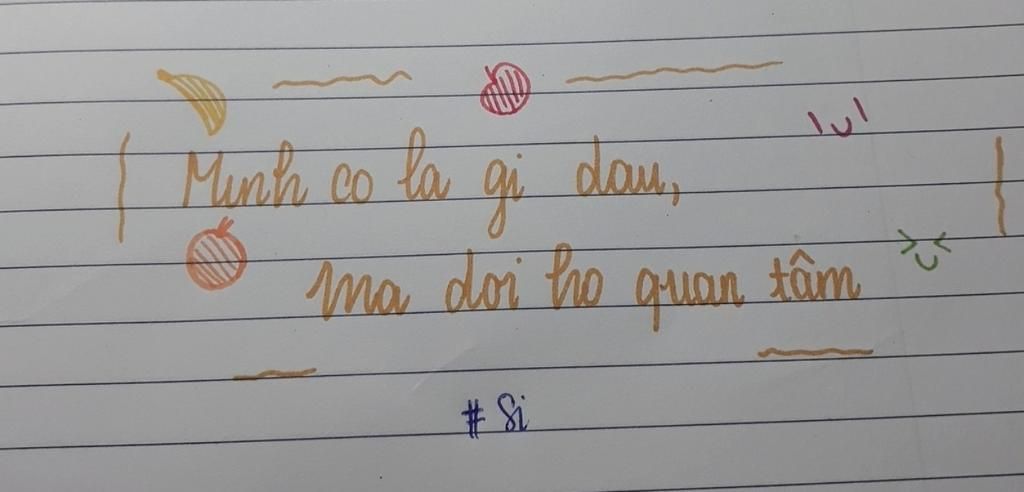 Minh co la gi dau,
ma doi ho quan tâm
# Si